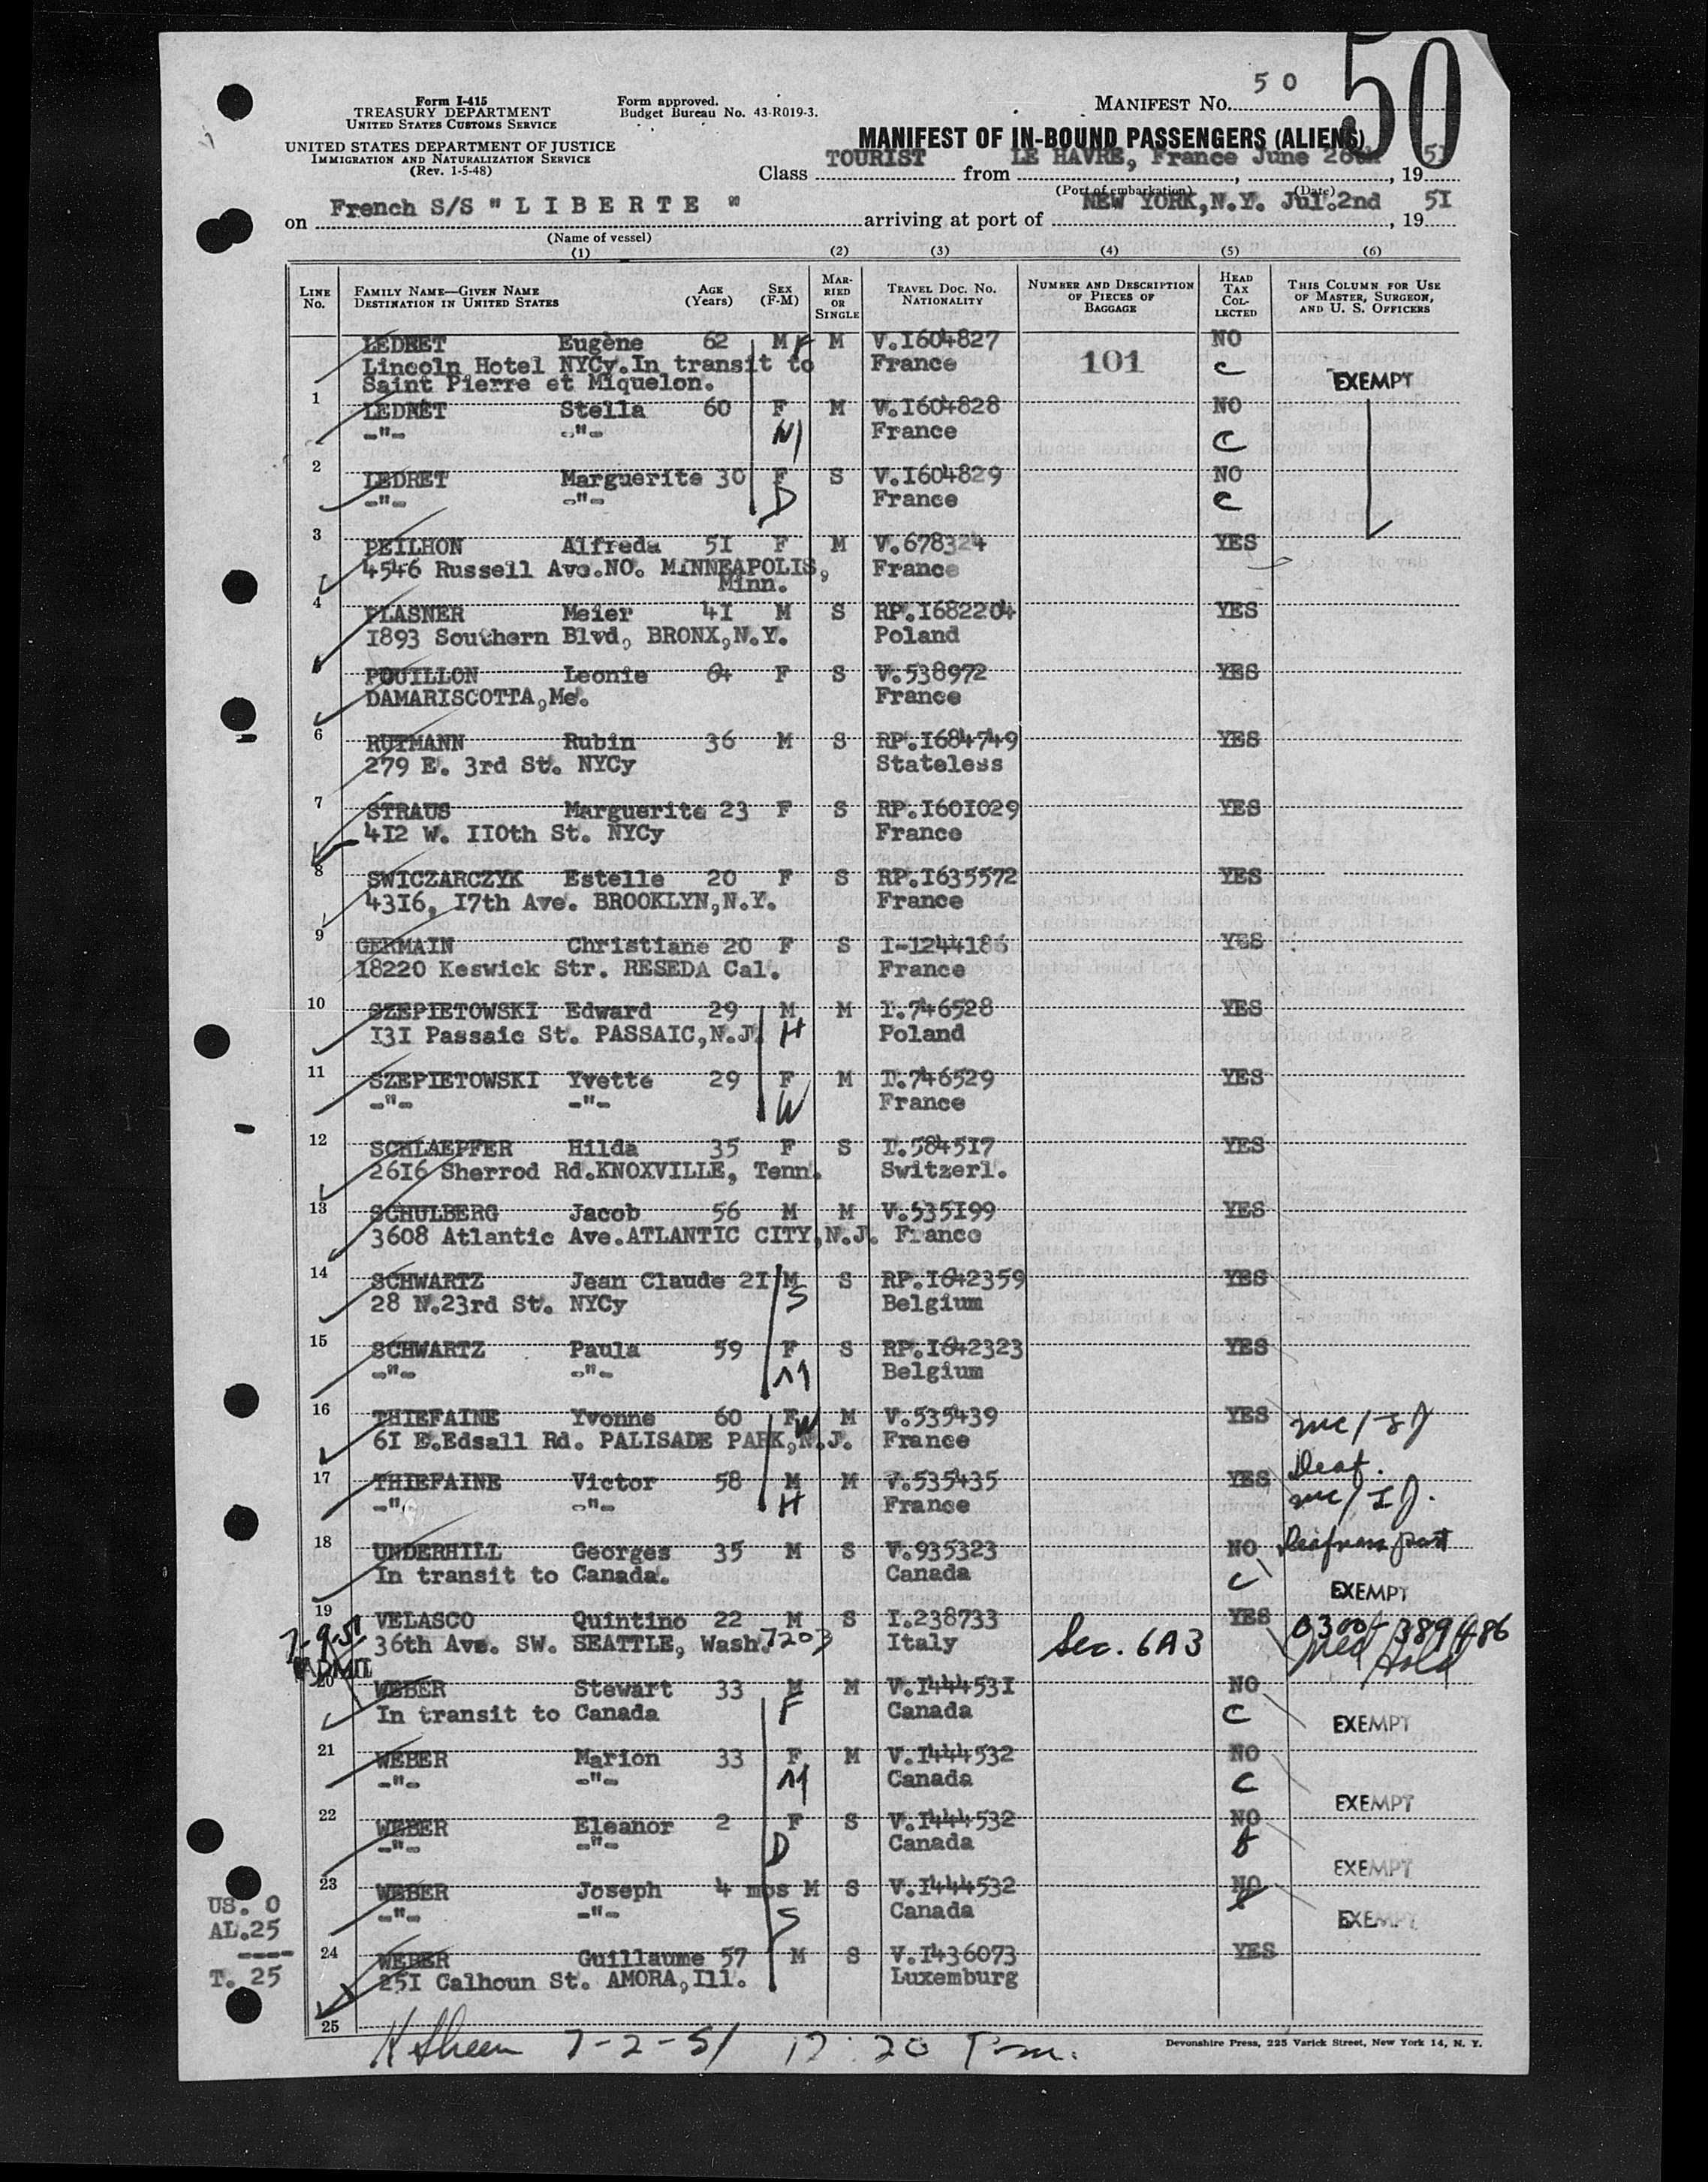 50
50
Form I-415
TREASURY DEPARTMENT
UNITED STATES CUSTOMS SERVICE
UNITED STATES DEPARTMENT OF JUSTICE
IMMIGRATION AND NATURALIZATION SERVICE
(Rev. 1-5-48)
Form approved.
Budget Bureau No. 43-R019-3.
MANIFEST NO.
MANIFEST OF IN-BOUND PASSENGERS (ALIENS)
Class TOURIST from LE HAVRE, France June 26th, 19 51
(Port of embarkation) (Date)
on French S/S " L I B E R T E " arriving at port of NEW YORK, N.Y. Jul. 2nd, 19 51
(Name of vessel)
(1) (2) (3) (4) (5) (6)
LINE NO. FAMILY NAME—GIVEN NAME DESTINATION IN UNITED STATES AGE (Years) SEX (F-M) MARRIED OR SINGLE TRAVEL DOC. NO. NATIONALITY NUMBER AND DESCRIPTION OF PIECES OF BAGGAGE HEAD TAX COLLECTED THIS COLUMN FOR USE OF MASTER, SURGEON, AND U. S. OFFICERS
LEDRET Eugène 62 M F M V.I604827 NO
Lincoln Hotel NYCy.In transit to France 101 C EXEMPT
Saint Pierre et Miquelon.
1
LEDRET Stella 60 F M V.I604828 NO
-"- -"- M France C
2
LEDRET Marguerite 30 F S V.I604829 NO
-"- -"- D France C
3
PEILHON Alfreda 5I F M V.678324 YES
4546 Russell Ave.NO. MINNEAPOLIS, France
Minn.
4
PLASNER Meier 4I M S RP.I682204 YES
I893 Southern Blvd, BRONX,N.Y. Poland
POUILLON Leonie 64 F S V.538972 YES
DAMARISCOTTA,Me. France
6
RUTMANN Rubin 36 M S RP.I684749 YES
279 E. 3rd St. NYCy Stateless
7
STRAUS Marguerite 23 F S RP.I60I029 YES
4I2 W. II0th St. NYCy France
8
SWICZARCZYK Estelle 20 F S RP.I635572 YES
43I6, I7th Ave. BROOKLYN,N.Y. France
9
GERMAIN Christiane 20 F S I-1244186 YES
18220 Keswick Str. RESEDA Cal. France
10
SZEPIETOWSKI Edward 29 M M I.746528 YES
I3I Passaic St. PASSAIC,N.J. H Poland
11
SZEPIETOWSKI Yvette 29 F M I.746529 YES
-"- -"- W France
12
SCHLAEPFER Hilda 35 F S I.5845I7 YES
26I6 Sherrod Rd.KNOXVILLE, Tenn. Switzerl.
13
SCHULBERG Jacob 56 M M V.535I99 YES
3608 Atlantic Ave.ATLANTIC CITY,N.J. France
14
SCHWARTZ Jean Claude 2I M S RP.I642359 YES
28 N.23rd St. NYCy S Belgium
15
SCHWARTZ Paula 59 F S RP.I642323 YES
-"- -"- M Belgium
16
THIEFAINE Yvonne 60 F W M V.535439 YES
6I E.Edsall Rd. PALISADE PARK,N.J. France
Deaf.
17
THIEFAINE Victor 58 M M V.535435 YES
-"- -"- H France
18
UNDERHILL Georges 35 M S V.935323 NO
In transit to Canada. Canada C EXEMPT
19
VELASCO Quintino 22 M S I.238733 YES 0300-389486
7-9-51 36th Ave. SW. SEATTLE, Wash. 7203 Italy Sec. 6A3 Med Hold
ADMIT
20
WEBER Stewart 33 M M V.I44453I NO
In transit to Canada F Canada C EXEMPT
21
WEBER Marion 33 F M V.I444532 NO
-"- -"- M Canada C EXEMPT
22
WEBER Eleanor 2 F S V.I444532 NO
-"- -"- D Canada EXEMPT
23
WEBER Joseph 4 mos M S V.I444532 NO
-"- -"- S Canada EXEMPT
24
WEBER Guillaume 57 M S V.I436073 YES
25I Calhoun St. AMORA,Ill. Luxemburg
25
US. 0
AL.25
----
T. 25
7-2-51 12:20 Pm.
Devonshire Press, 225 Varick Street, New York 14, N. Y.